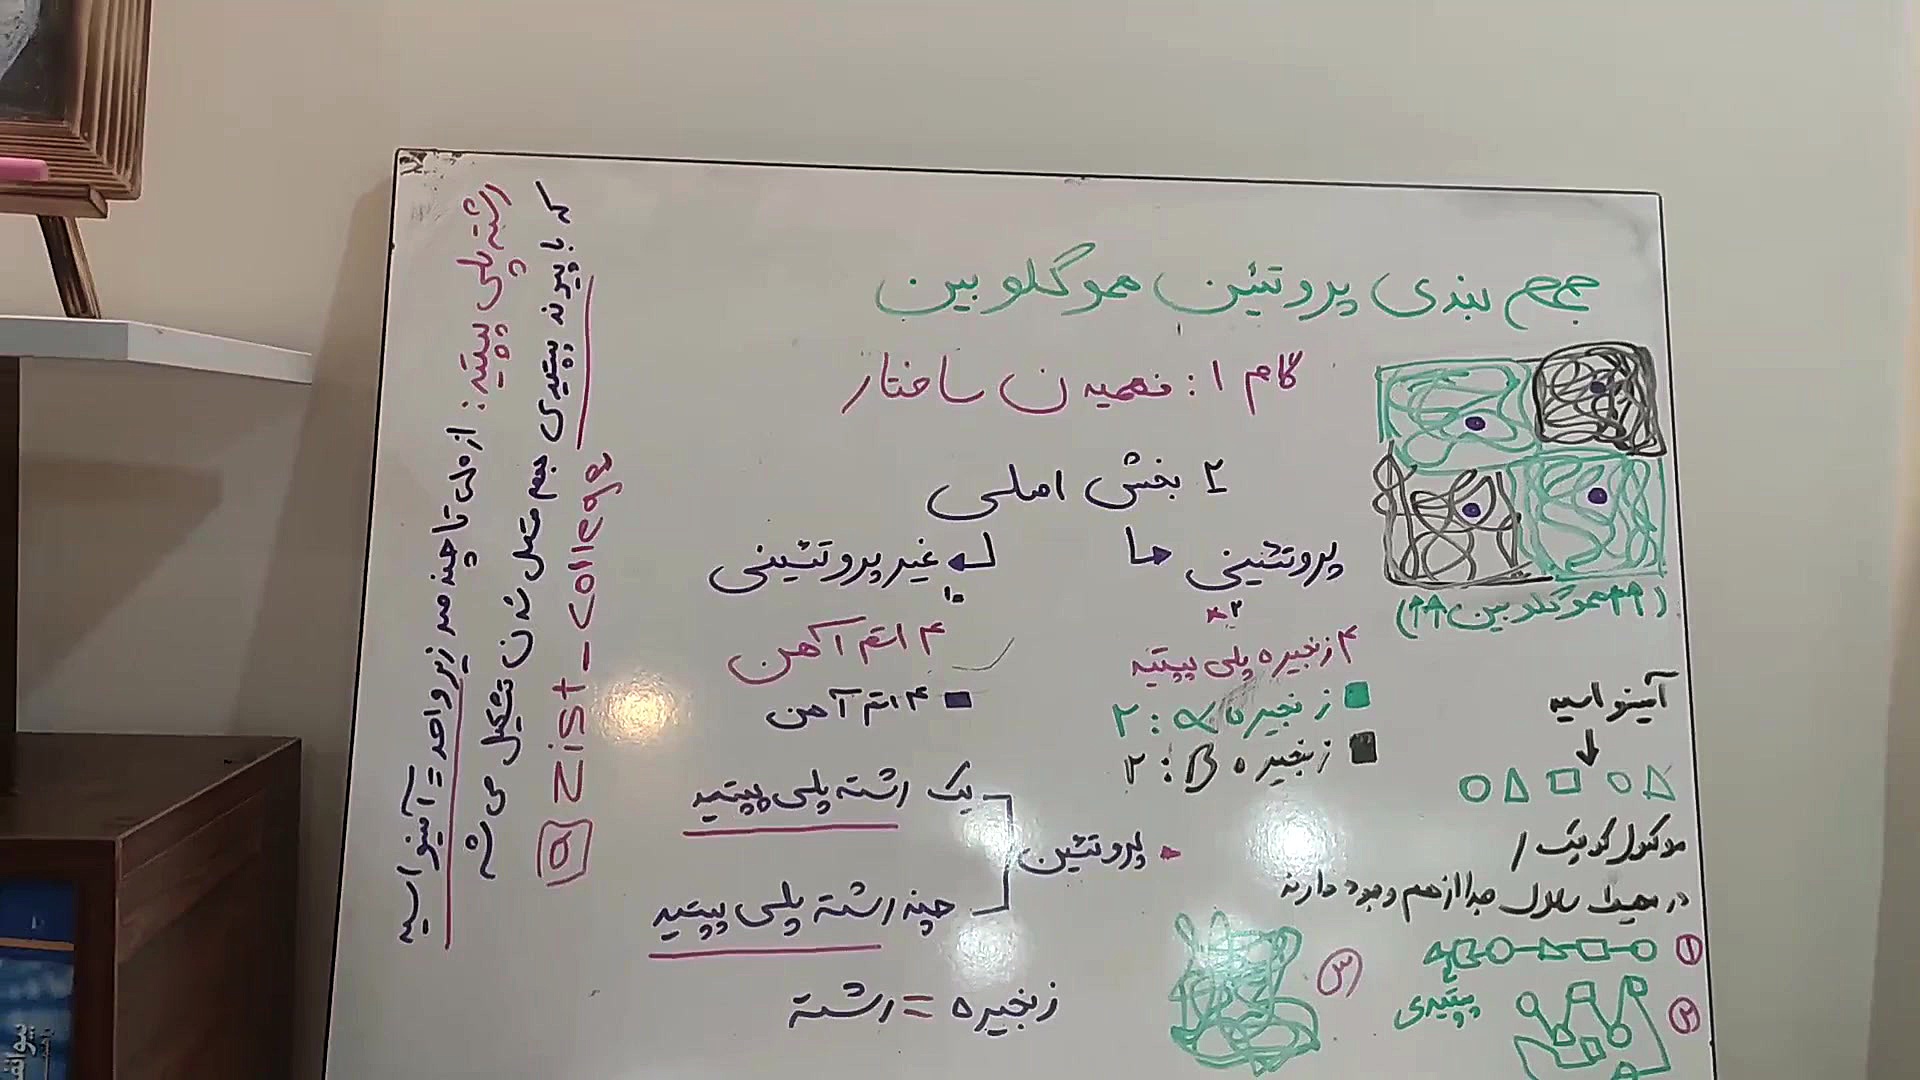 جمع بندی پروتئین هموگلوبین
گام ۱: فهمیدن ساختار
۲ بخش اصلی
پروتئینی
غیرپروتئینی
۴ زنجیره پلی پپتید
زنجیره α: ۲
زنجیره β: ۲
۴ اتم آهن
۴ اتم آهن
پروتئین
یک رشته پلی پپتید
چند رشته پلی پپتید
زنجیره = رشته
(هموگلوبین)
آمینو اسید
مولکول کوچک /
در محیط سلول جدا از هم وجود دارند
۱
پپتیدی
۲
۳
رشته پلی پپتید: از ده تا چند صد زیر واحد = آمینو اسید
که با پیوند پپتیدی بهم متصل شدن تشکیل می شه
@zist_college